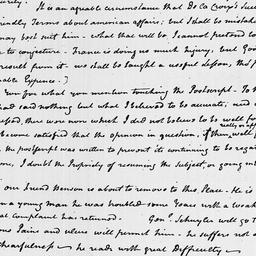 surely.
It is an agreable circumstance that De La Croix's Suc
friendly Terms about american affairs; but I shall be mistaken
may post sent him – what that will be I cannot pretend to
to conjecture. France is doing us much injury, but God
result from it. we shall be taught a useful Lesson, tho' p
able Expence.)
for what you mention touching the Postscript. To th
had said nothing but what I believed to be accurate, and a
ssed, there were none which I did not believe to be well fo
really
become satisfied that the opinion in question, if then well f
the postscript was written to prevent it continuing to be regar
ore, I doubt the Propriety of resuming the Subject, or going int
our Friend Benson is about to remove to this Place. He is
n a young man he was troubled some Years with a weak
al Complaint has returned. Gen.l Schuyler will go t
ms Pains and ulcers will permit him. he suffers not a
chearfulness – he reads with great Difficulty –